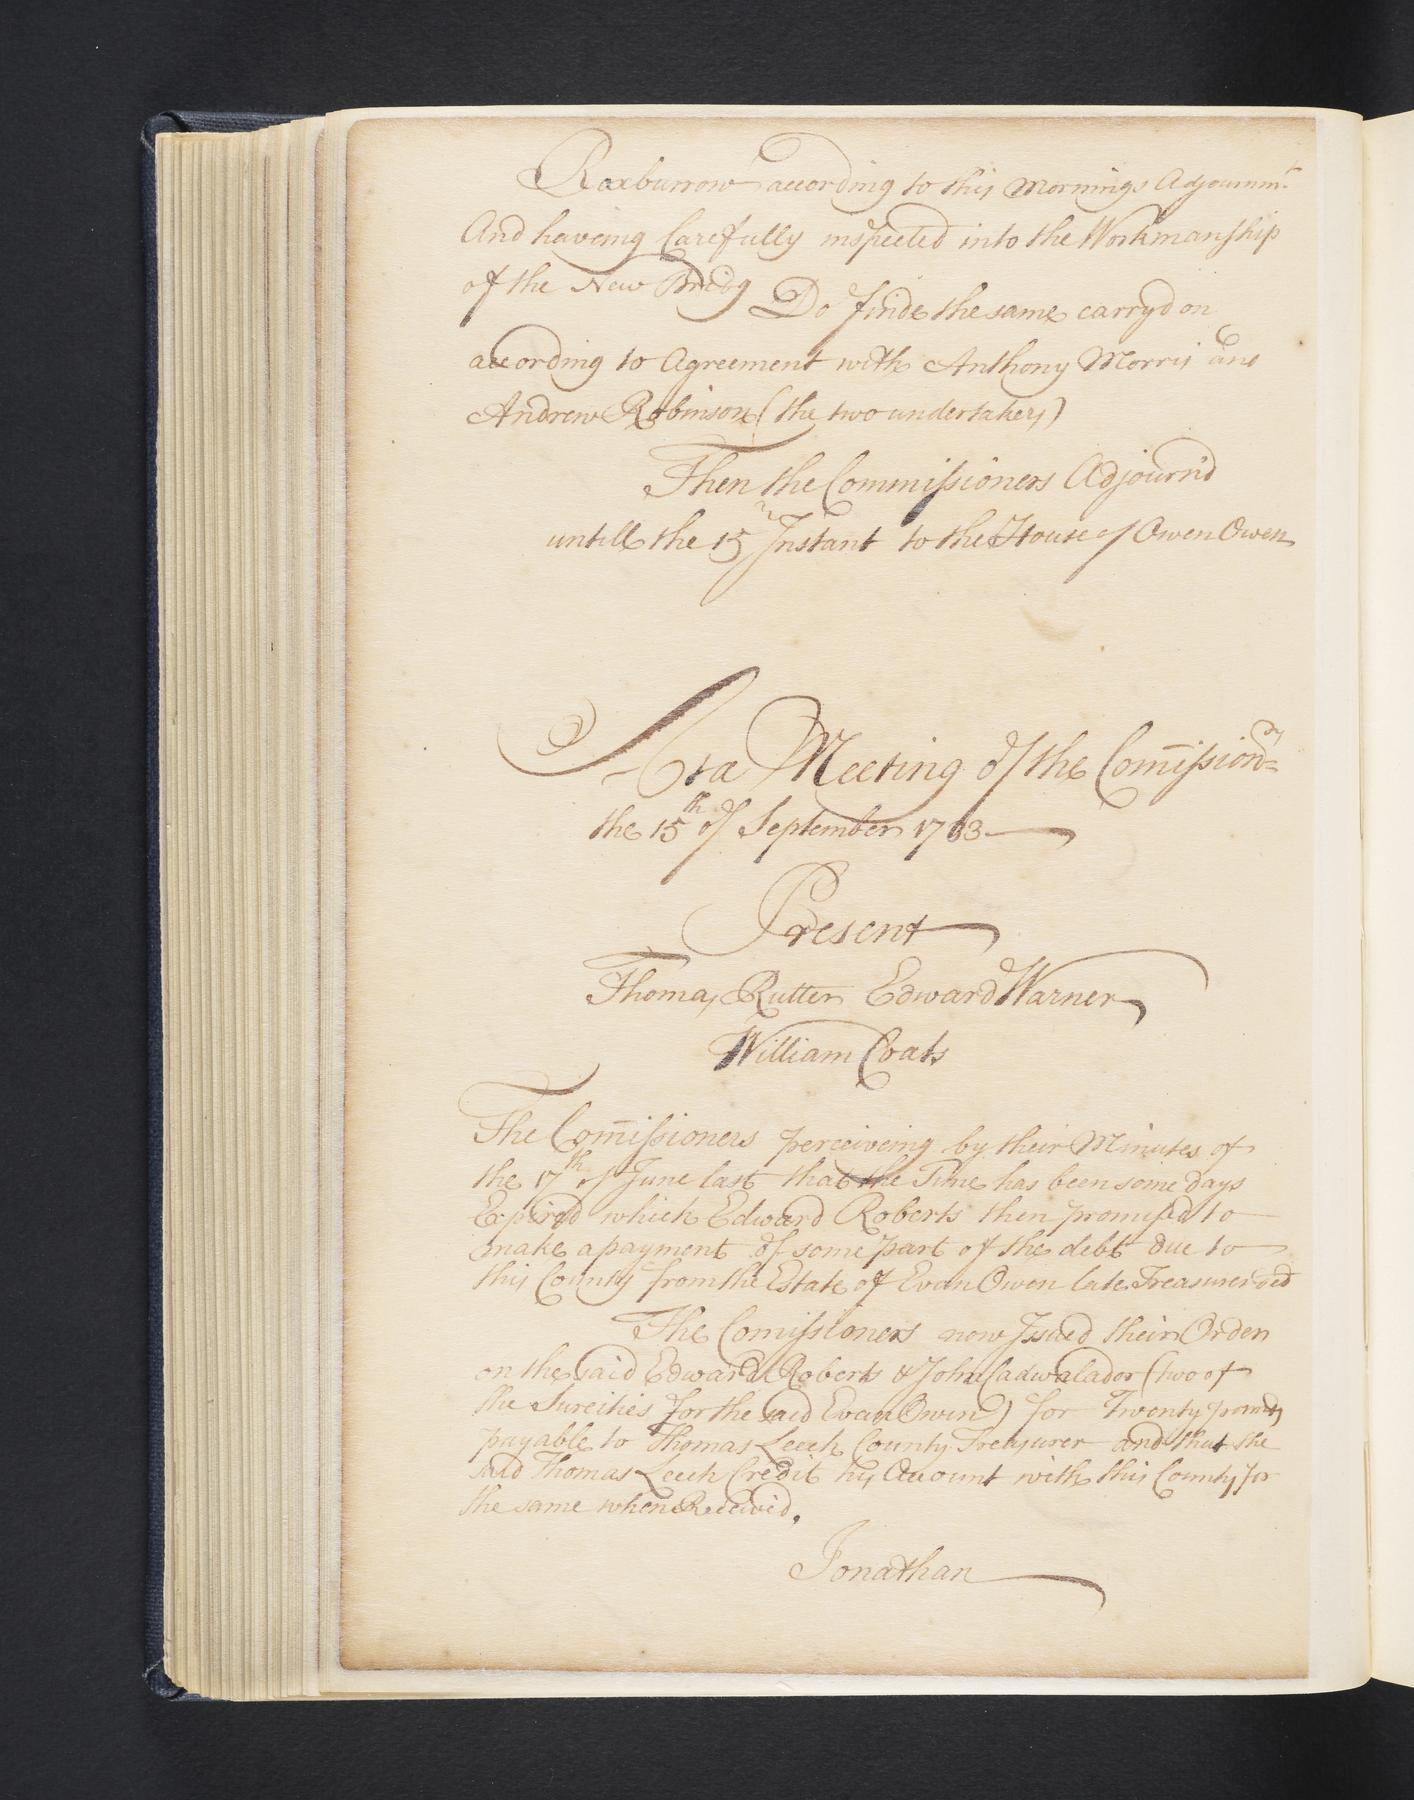 Roxburrow according to this Mornings Adjournmt.
And haveing Carefully inspected into the Workmanship
of the New Bridg Do finde the same carryd on
according to Agreement with Anthony Morris and
Andrew Robinson (the two undertakers)
Then the Commissioners Adjourn'd
untill the 15 Instant to the House of Owen Owen
At a Meeting of the Comission
the 15th of September 1783
Present
Thomas Rutter Edward Warner
William Coats
The Comissioners perceiveing by their Minutes of
the 17th of June last that the Time has been some days
Expired which Edward Roberts then promised to
make a payment of some part of the debt due to
this County from the Estate of Evan Owen late Treasurer ded
The Comissioners now Issued their Order
on the said Edward Roberts & John Cadwalador (two of
the Sureities for the said Evan Owen) for Twenty pounds
payable to Thomas Leech County Treasurer and that the
said Thomas Leech Credit his Account with this County for
the same when Received.
Jonathan